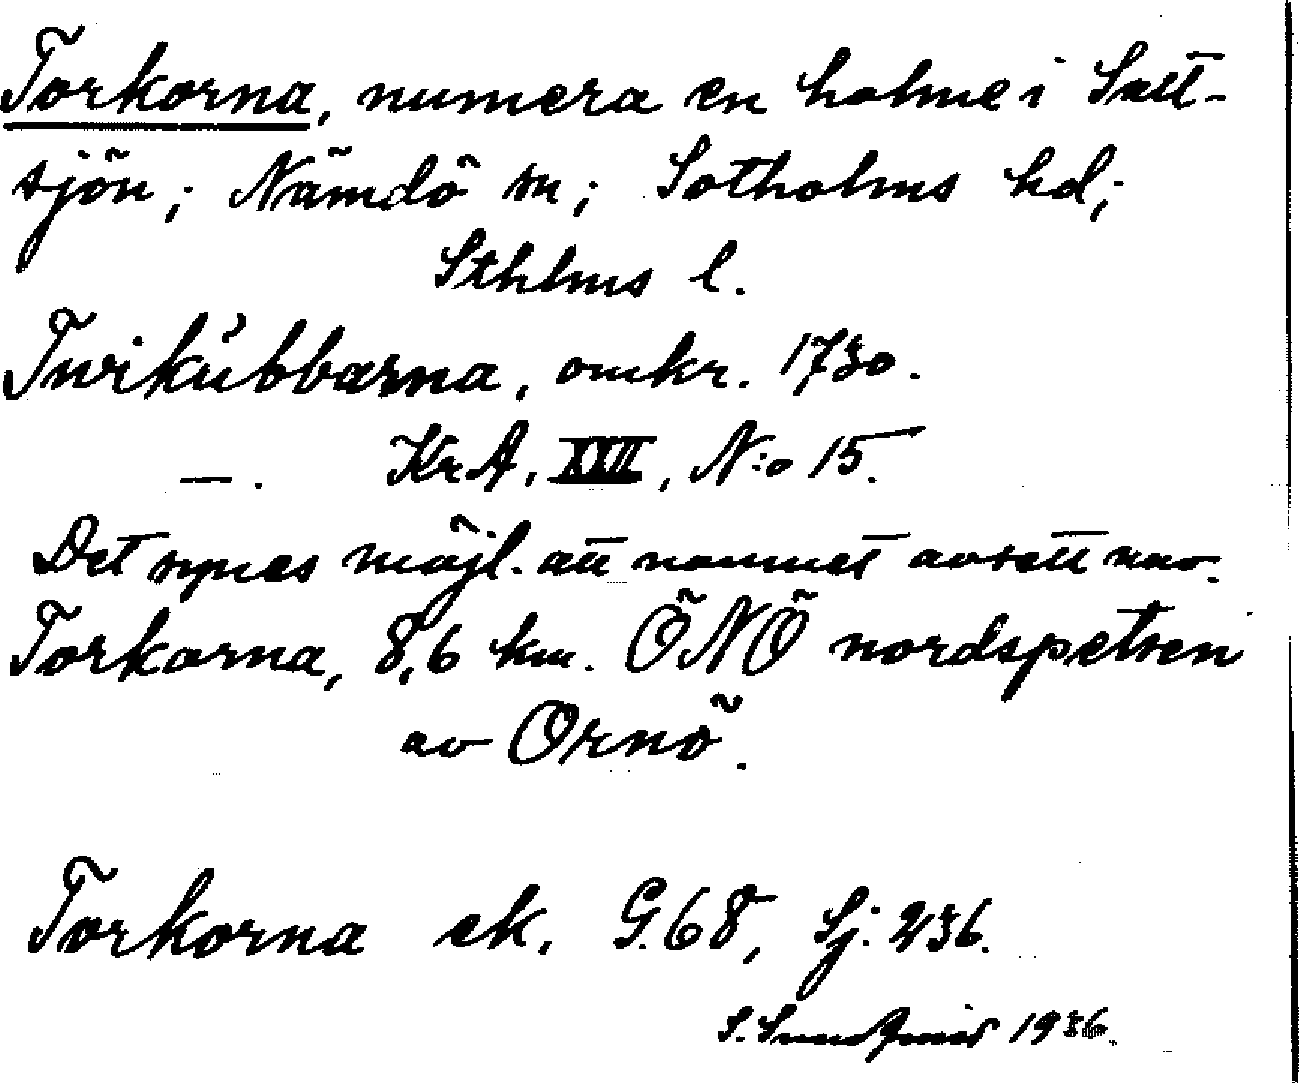 Torkorna, numera en holme i Salt-
sjön; Nämdö sn; Sotholms hd;
Sthlms l.
Turikúbbarna, omkr. 1730.
—. Kr.A, XXII, N:o 15.
Det synes möjl. att namnet avsett nuv.
Torkorna, 8,6 km. ÖNÖ nordspetsen
av Ornö.
Torkorna ek. G.68, Sj. 236.
S. 1936.